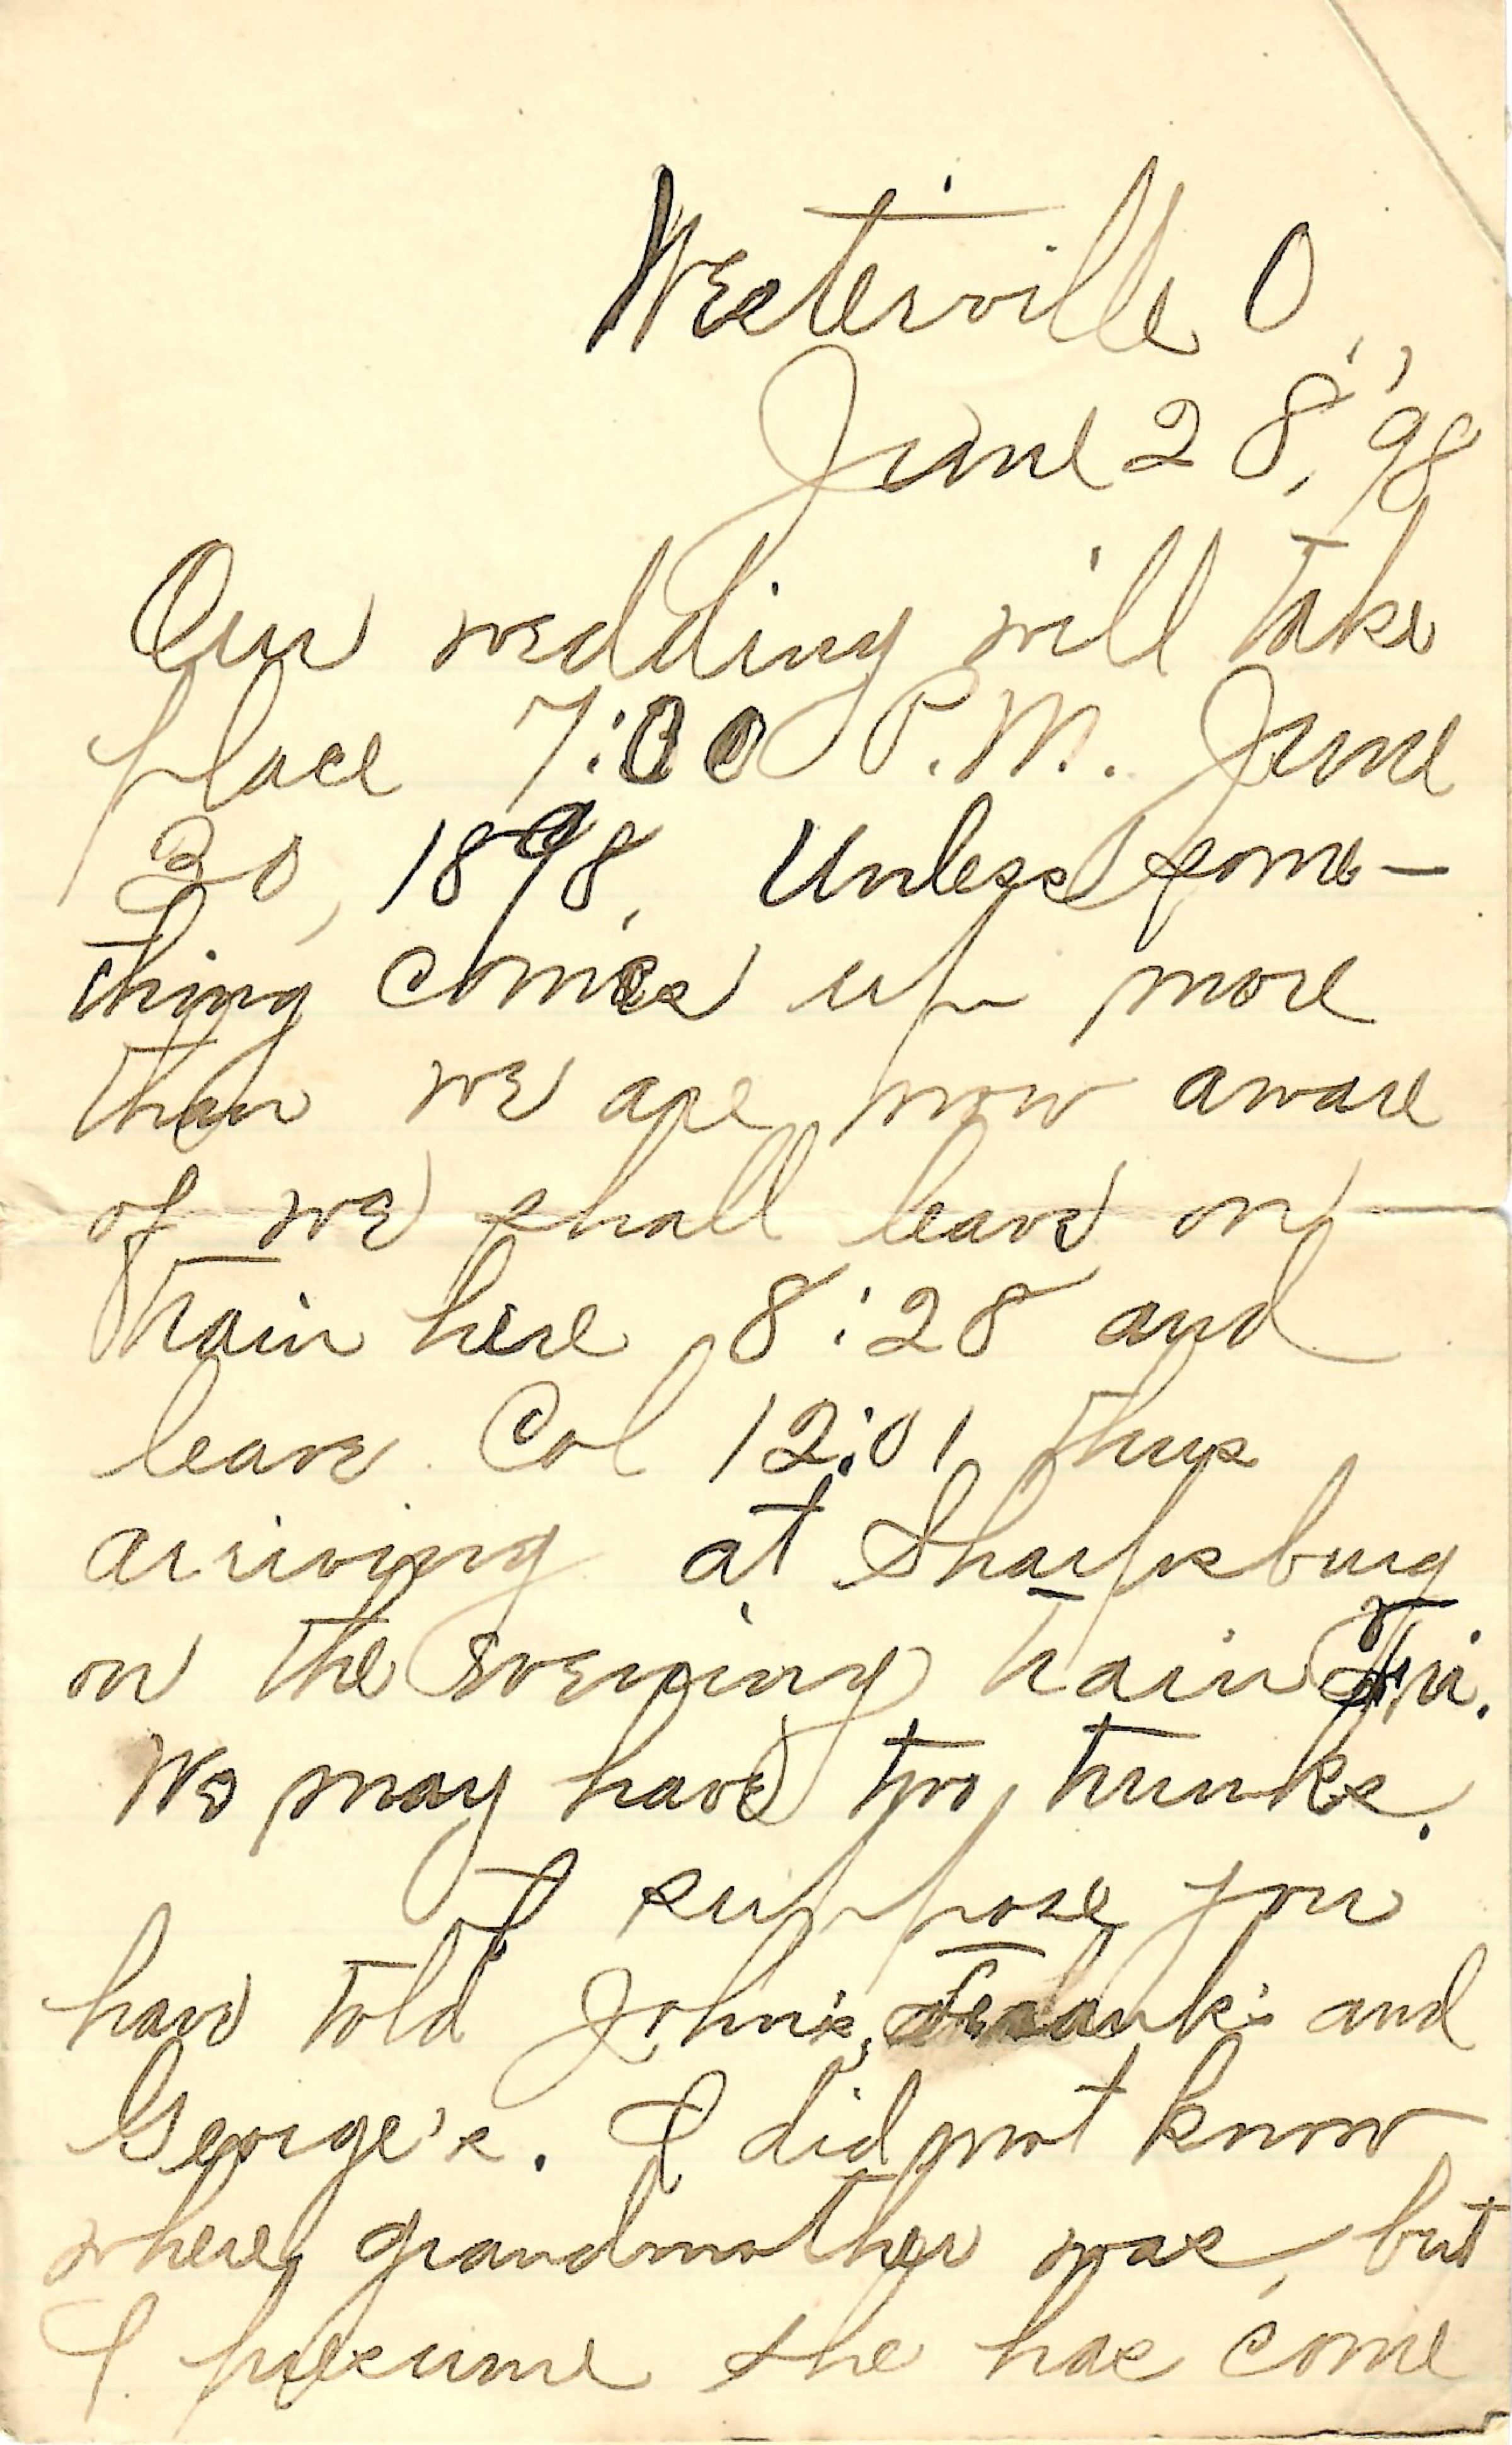 Westerville O.,
June 28, '98
Our wedding will take
place 7:00 P.M. June
30, 1898. Unless some-
thing comes up more
than we are now aware
of we shall leave on
train here 8:28 and
leave Col 12:01 thus
arriving at Sharpsburg
on the evening train Fri.
We may have two trunks.
I suppose you
have told John's, Frank's and
George's. I did not know
where grandmother was, but
I presume she has come